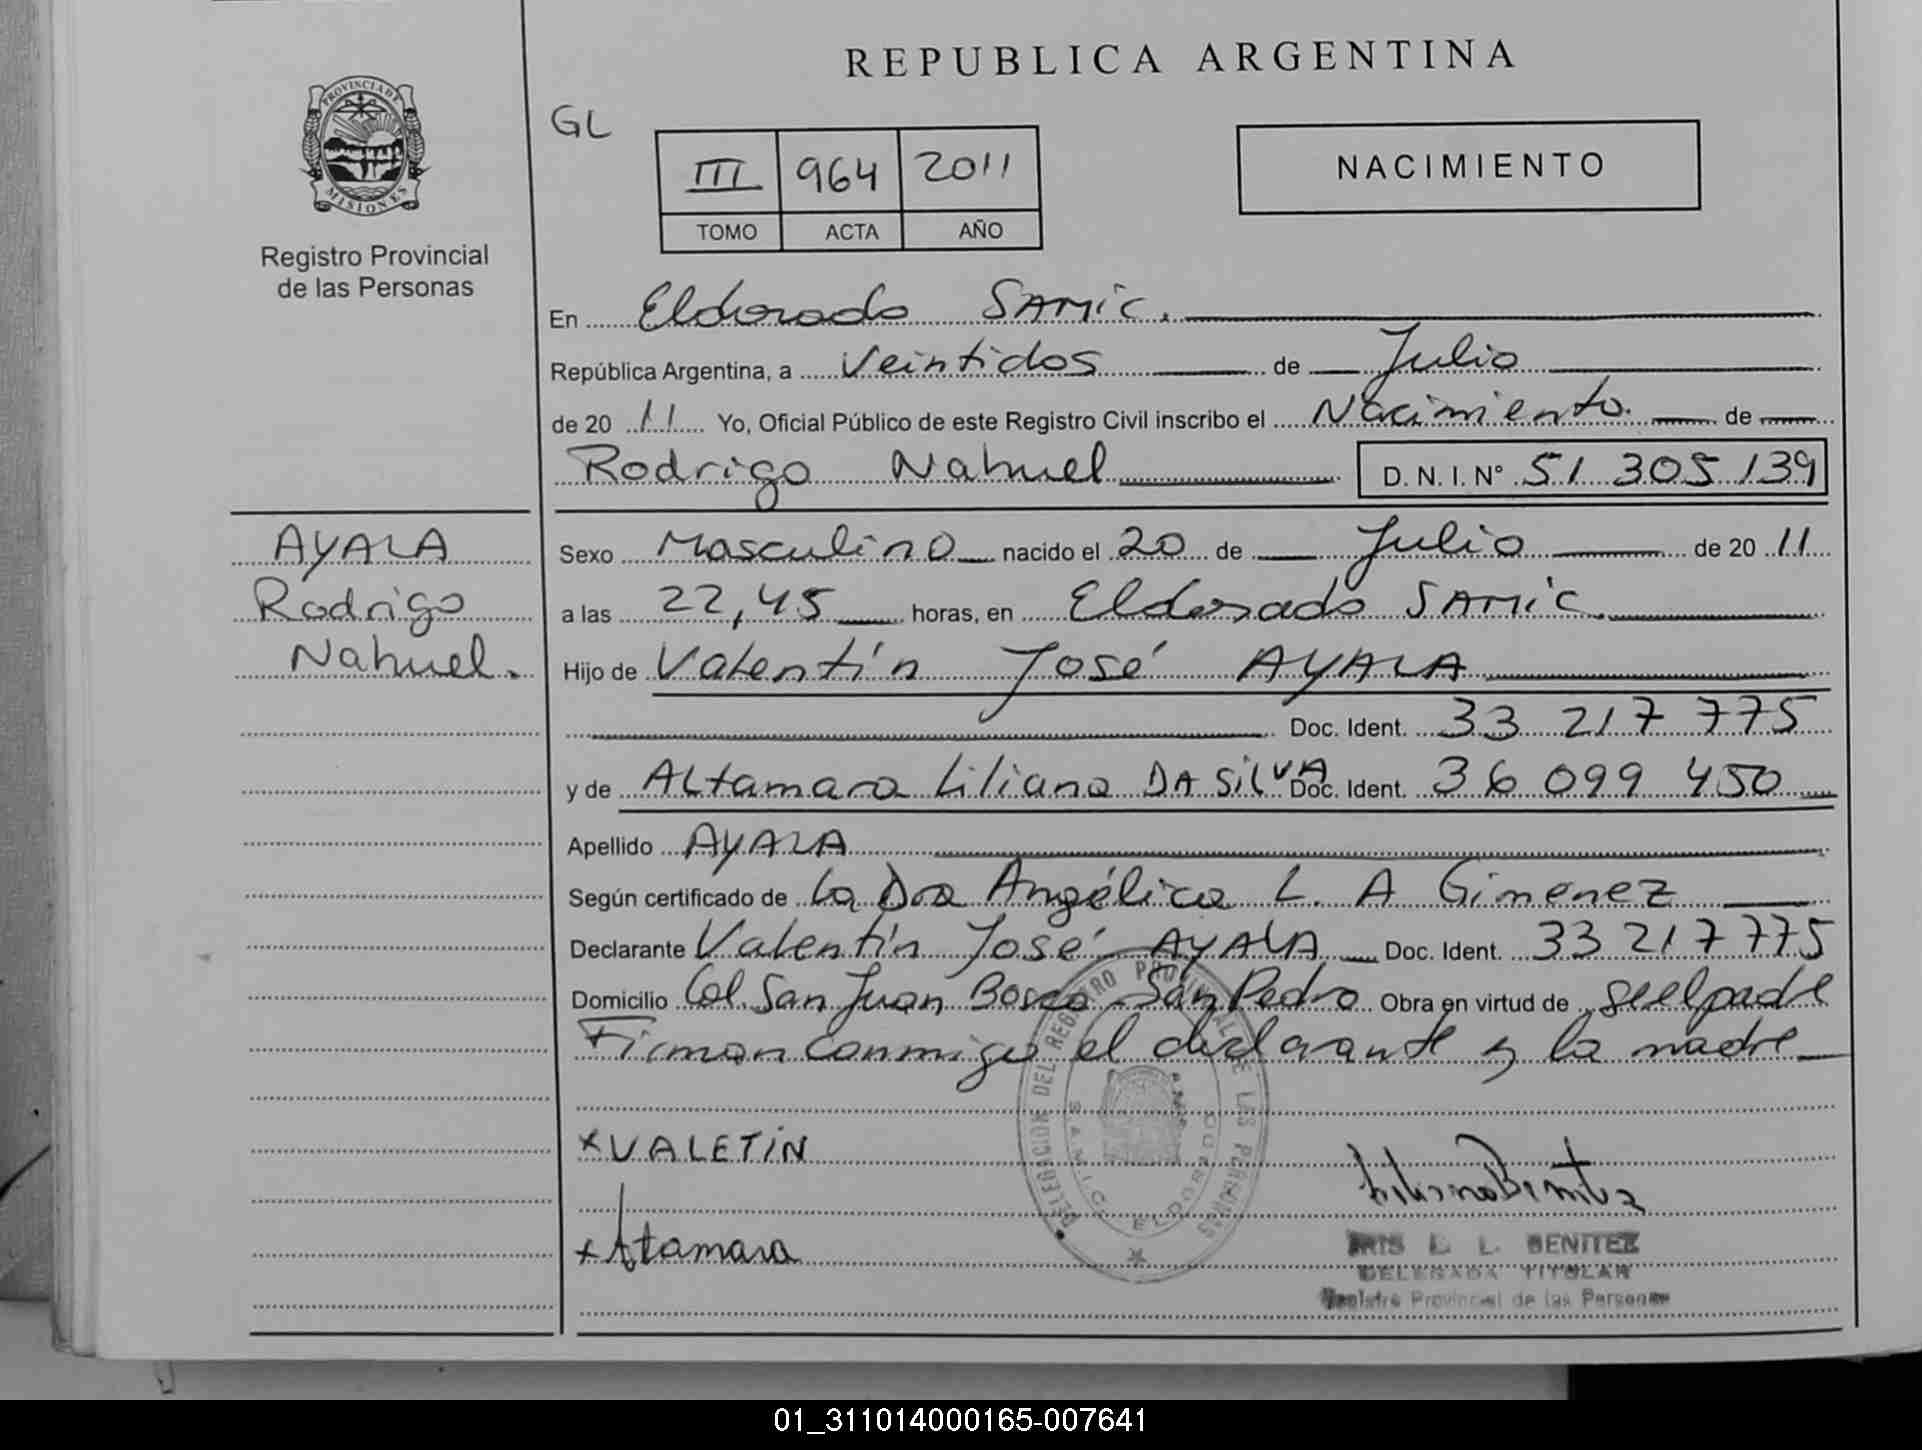 REPUBLICA ARGENTINA
PROVINCIA DE
MISIONES
Registro Provincial
de las Personas
GL
III 964 2011
TOMO ACTA AÑO
NACIMIENTO
En Eldorado SAMIC.
República Argentina, a Veintidos de Julio
de 20 11 Yo, Oficial Público de este Registro Civil inscribo el Nacimiento. de
Rodrigo Nahuel D.N.I.N° 51 305 139
AYALA
Rodrigo
Nahuel.
Sexo Masculino nacido el 20 de Julio de 20 11
a las 22,45 horas, en Eldorado SAMIC.
Hijo de Valentín José AYALA
Doc. Ident. 33 217 775
y de Altamara Liliana DA SilVA Doc. Ident. 36 099 450
Apellido AYALA
Según certificado de La Dra Angélica L. A Gimenez
Declarante Valentín José AYALA Doc. Ident. 33 217 775
Domicilio Col. San Juan Bosco - San Pedro Obra en virtud de
Firman conmigo el declarante y la madre
DELEGACION DEL REGISTRO PROVINCIAL DE LAS PERSONAS
SAMIC ELDORADO
x VALETIN
x Atamara
IRIS L. L. BENITEZ
DELEGADA TITULAR
Registro Provincial de las Personas
01_311014000165-007641